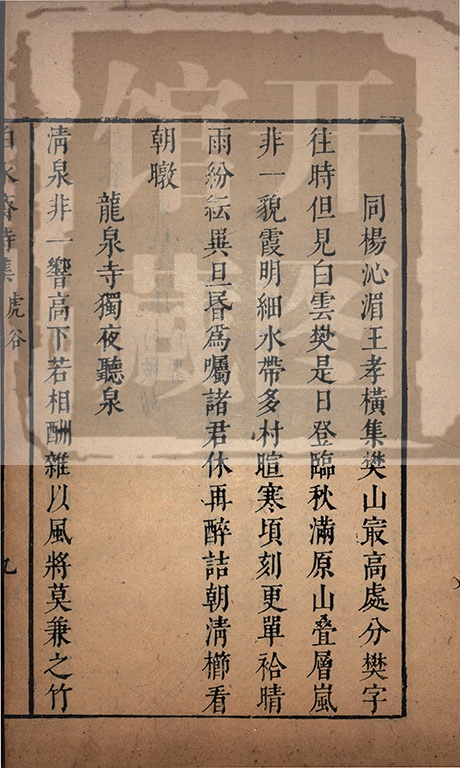 同楊沁湄王孝橫集樊山㝡高處分樊字
往時但見白雲樊是日登臨秋滿原山疊層嵐
非一貌霞明細水帶多村暄寒頃刻更單袷晴
雨紛紜異旦昬爲囑諸君休再醉詰朝淸櫛看
朝暾
龍泉寺獨夜聽泉
淸泉非一響高下若相酬雜以風將莫兼之竹
集 虎谷
九
开图
馆藏